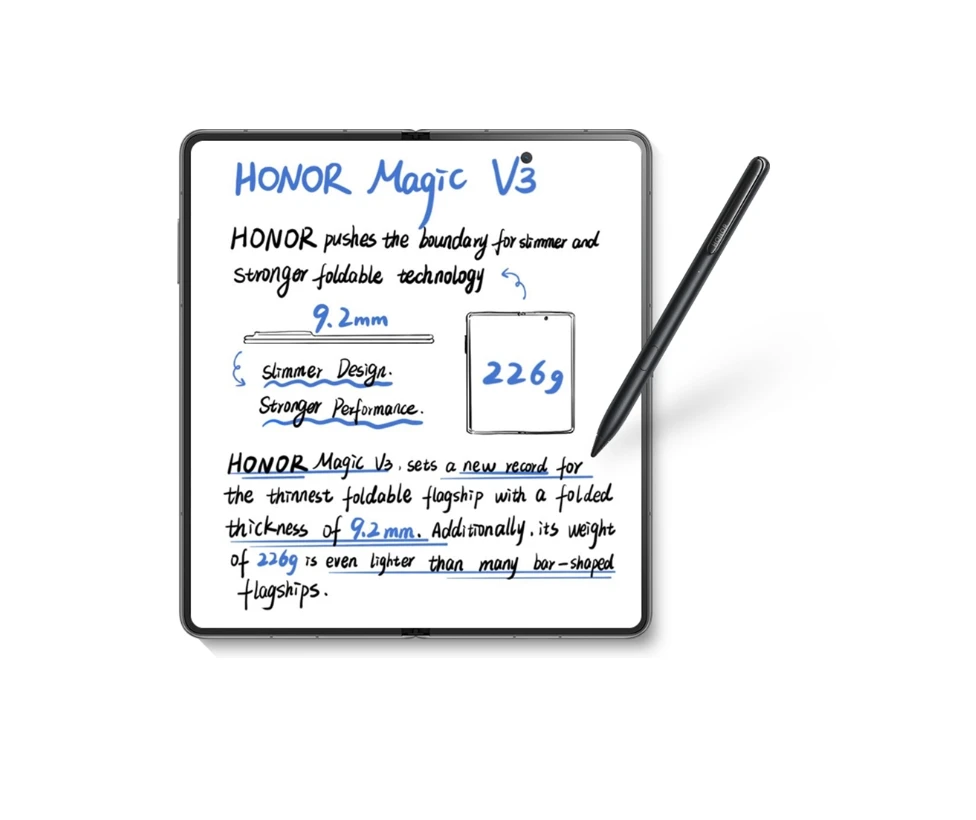 HONOR Magic V3
HONOR pushes the boundary for slimmer and
stronger foldable technology
9.2mm
226g
slimmer Design.
Stronger Performance.
HONOR Magic V3, sets a new record for
the thinnest foldable flagship with a folded
thickness of 9.2mm. Additionally, its weight
of 226g is even lighter than many bar-shaped
flagships.
HONOR